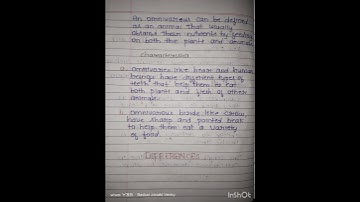 An omnivorous can be defined
as an animal that usually
obtains their nutrients by feeding
on both the plants and animals
Characteristics
a. omnivores like bear and human
beings have different types of
teeth that help them to eat
both plants and flesh of other
animals.
b. omnivorous birds like crow
have sharp and pointed beak
to help them eat a variety
of food.
DIFFERENCES
InShOt